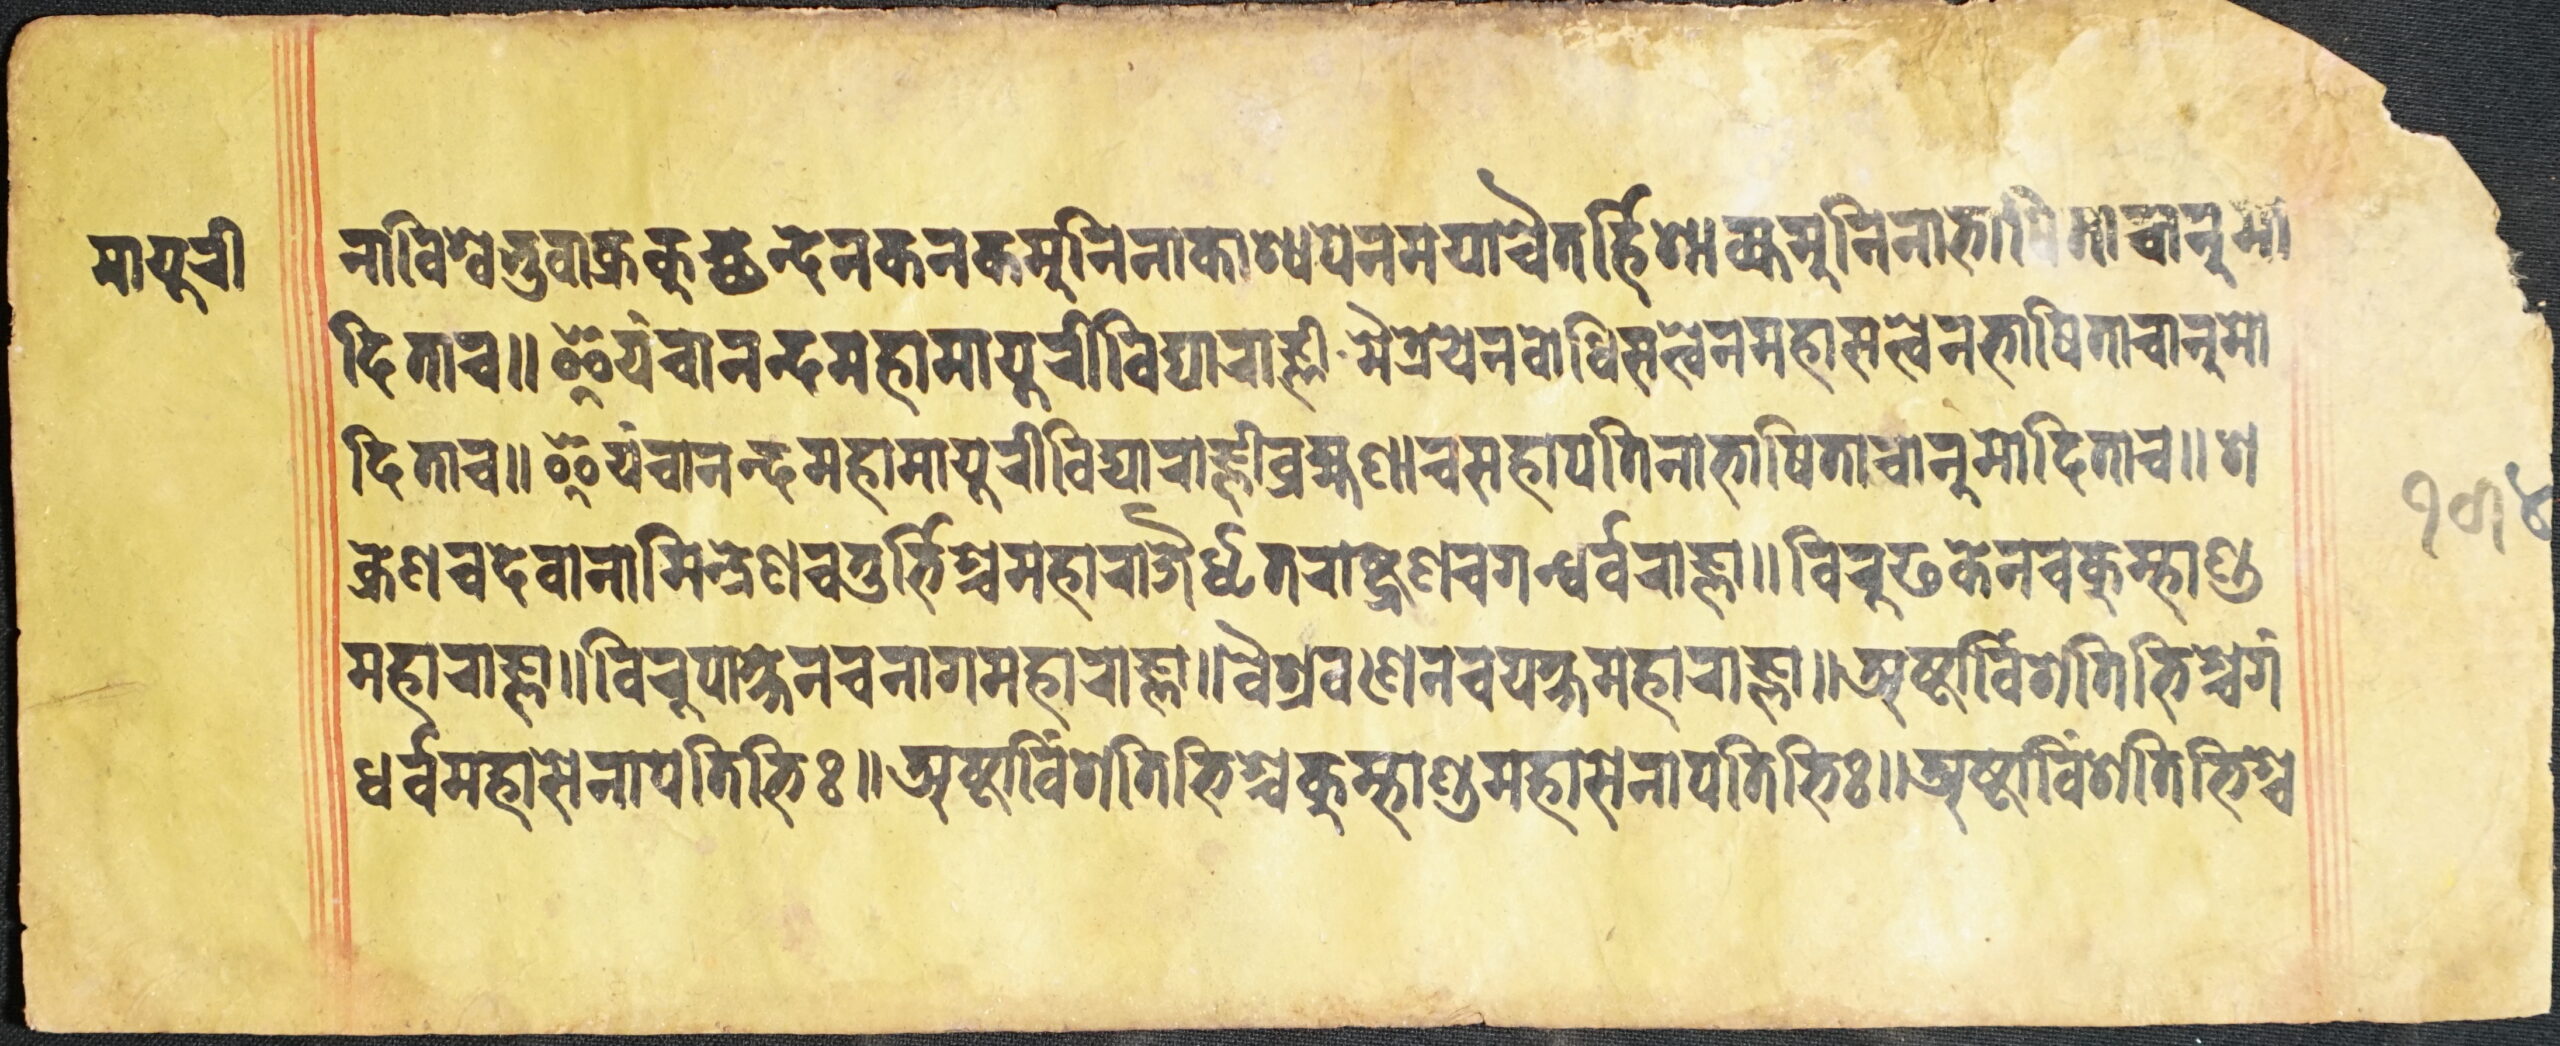 मायूरी
नाविश्वभुवाक्रकुच्छन्देनकनकमुनिनाकाश्यपेनमयाचैतर्हिशाक्यमुनिनाभाषिताचानुमो
दिताच॥ ॐयंचानन्दमहामायूरीविद्याराज्ञी·मैत्रेयेनबोधिसत्वेनमहासत्वेनभाषिताचानुमो
दिताच॥ ॐयंचानन्दमहामायूरीविद्याराज्ञीब्रह्मणाचसहापतिनाभाषिताचानुमोदिताच॥ श
क्रेणचदेवानामिन्द्रेणचतुर्भिश्चमहाराजैर्धृतराष्ट्रेणचगन्धर्वराज्ञा॥ विरुढकेनचकुम्भाण्ड
महाराज्ञा॥ विरुपाक्षेनचनागमहाराज्ञा॥ वैश्रवणेनचयक्षमहाराज्ञा॥ अष्टाविंशतिभिश्चगं
धर्वमहासेनापतिभिः॥ अष्टाविंशतिभिश्चकुम्भाण्डमहासेनापतिभिः॥ अष्टाविंशतिभिश्च